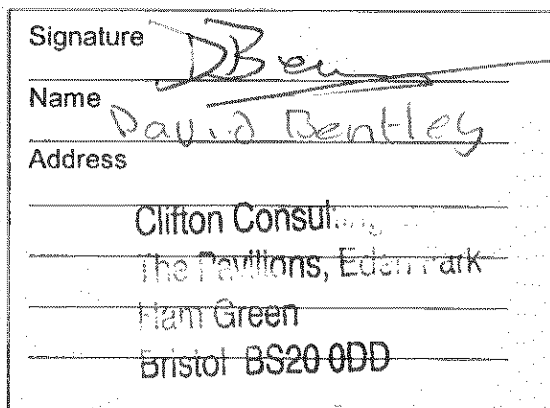 Signature DBen
Name David Bentley
Address
Clifton Consulting
The Pavilions, Eden Park
Ham Green
Bristol BS20 0DD